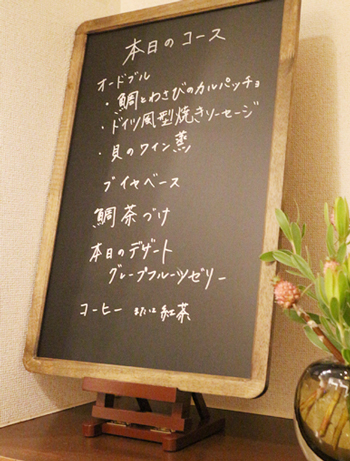 本日のコース
オードブル
・鯛とわさびのカルパッチョ
・ドイツ風型焼きソーセージ
・貝のワイン蒸
ブイヤベース
鯛茶づけ
本日のデザート
グレープフルーツゼリー
コーヒー または 紅茶